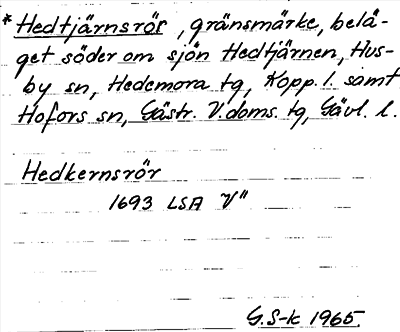 * Hedtjärnsrör, gränsmärke, belä-
get söder om sjön Hedtjärnen, Hus-
by sn, Hedemora tg, Kopp. l. samt
Hofors sn, Gästr. V. doms. tg, Gävl. l.
Hedkernsrör
1693 LSA V"
G.S-k 1965.